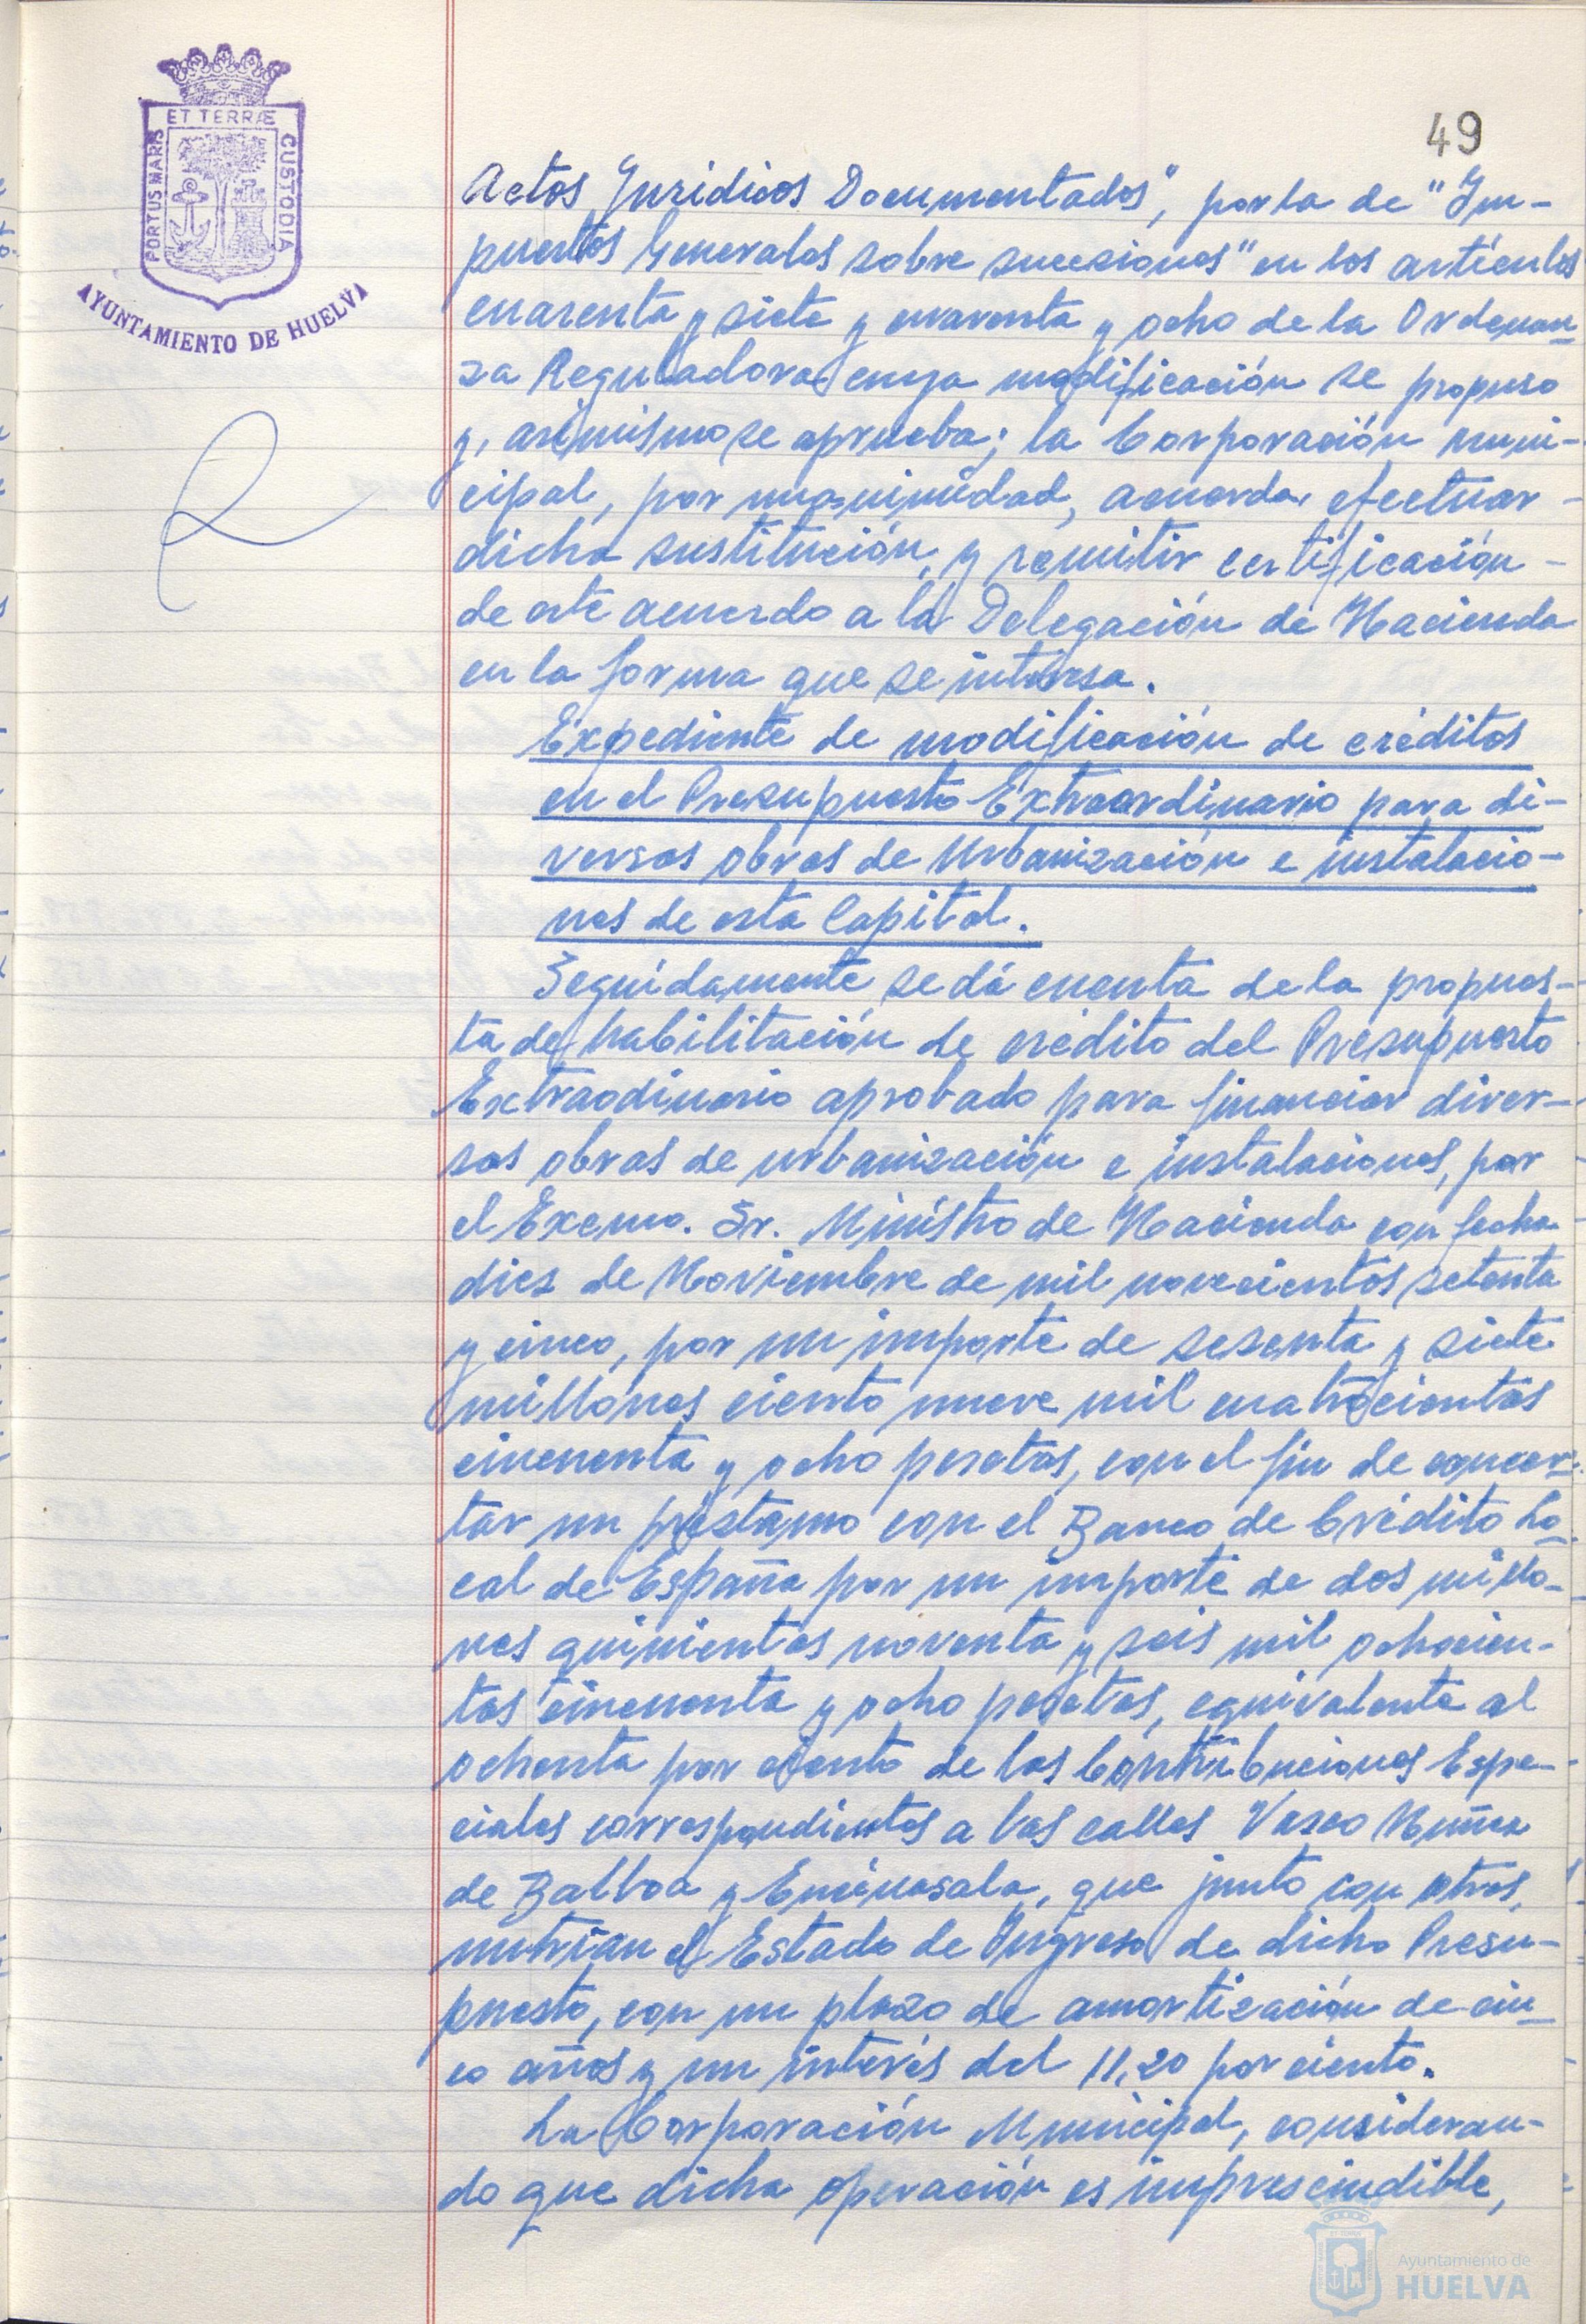 49
ET TERRÆ
PORTUS MARIS
CUSTODIA
AYUNTAMIENTO DE HUELVA
Actos Jurídicos Documentados", por la de "Im-
puestos Generales sobre sucesiones" en los artículos
cuarenta y siete y cuarenta y ocho de la Ordenan-
za Reguladora cuya modificación se propuso
y, asimismo se aprueba; la Corporación muni-
cipal, por unanimidad, acuerda efectuar -
dicha sustitución, y remitir certificación -
de este acuerdo a la Delegación de Hacienda
en la forma que se interesa.
Expediente de modificación de créditos
en el Presupuesto Extraordinario para di-
versas obras de Urbanización e instalacio-
nes de esta Capital.
Seguidamente se dá cuenta de la propues-
ta de habilitación de crédito del Presupuesto
Extraodinario aprobado para financiar diver-
sas obras de urbanización e instalaciones, por
el Excmo. Sr. Ministro de Hacienda con fecha
diez de Noviembre de mil novecientos setenta
y cinco, por un importe de sesenta y siete
millones ciento nueve mil cuatrocientas
cincuenta y ocho pesetas, con el fin de concer-
tar un préstamo con el Banco de Crédito Lo-
cal de España por un importe de dos millo-
nes quinientas noventa y seis mil ochocien-
tas cincuenta y ocho pesetas, equivalente al
ochenta por ciento de las Contribuciones Espe-
ciales correspondientes a las calles Vasco Nuñez
de Balboa y Encinasola, que junto con otros,
nutrían el Estado de Ingreso de dicho Presu-
puesto, con un plazo de amortización de cin-
co años y un interés del 11,20 por ciento.
La Corporación Municipal, consideran-
do que dicha operación es imprescindible,
Ayuntamiento de
HUELVA